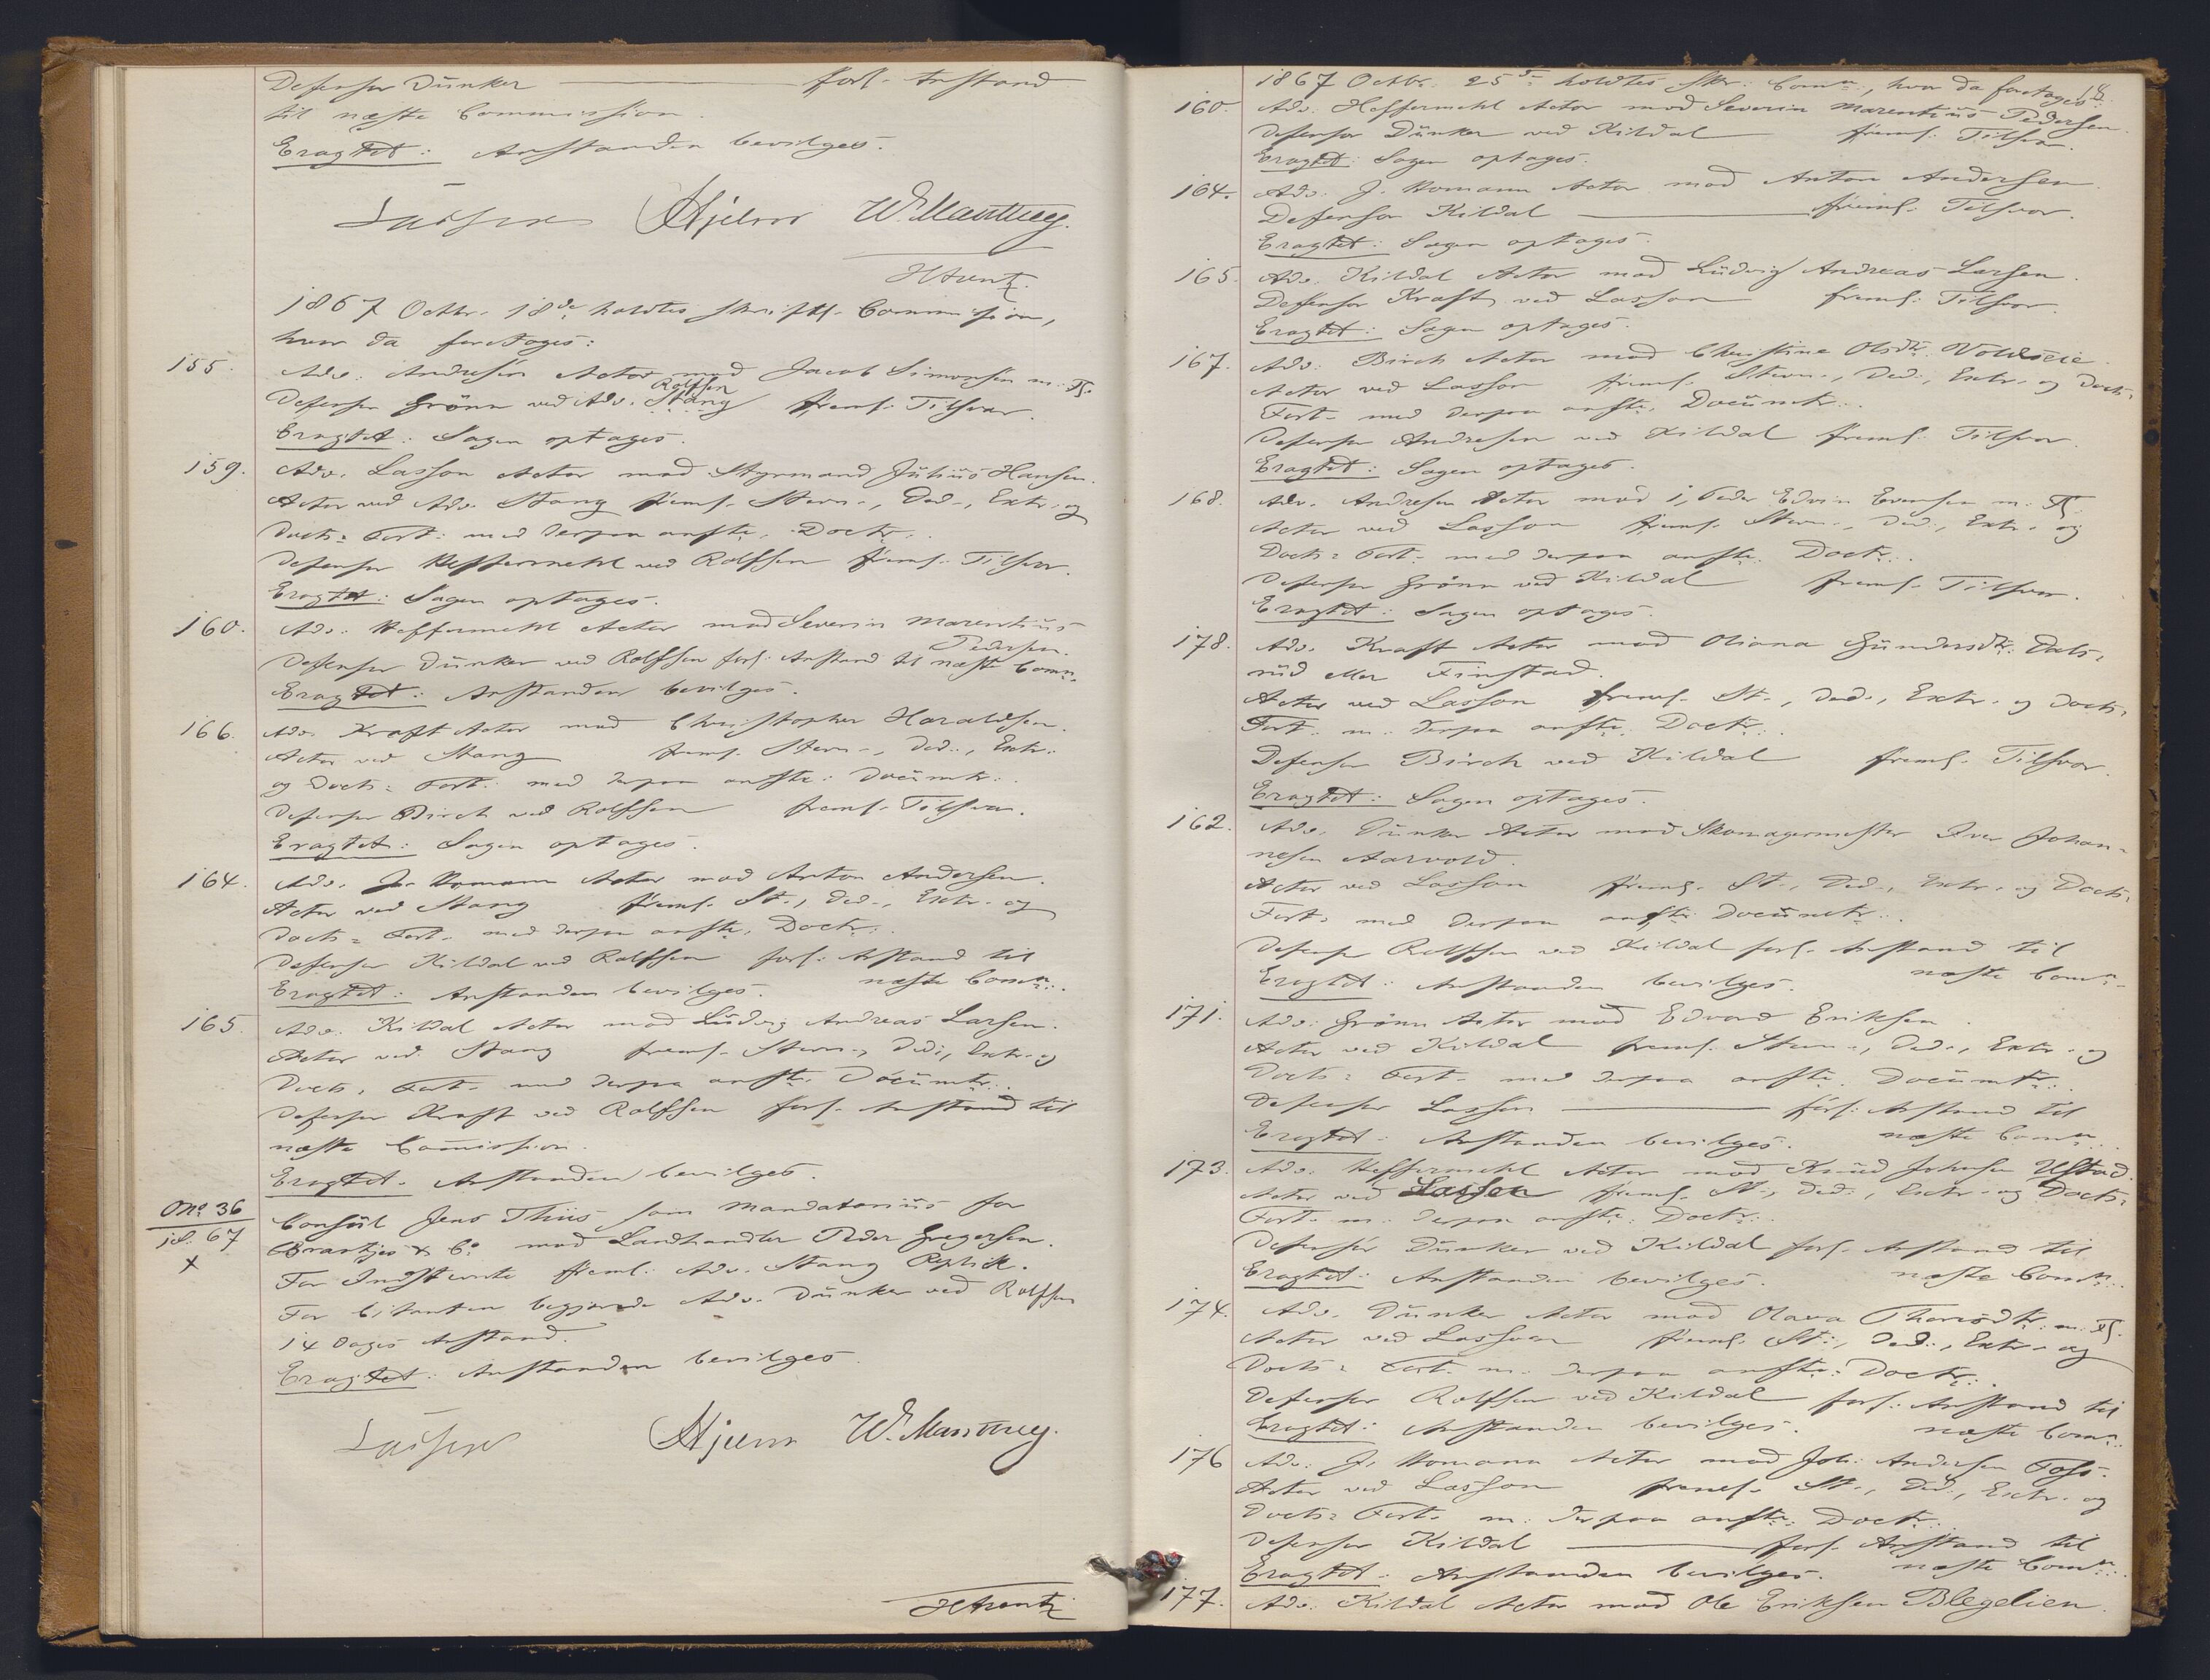 Defensor Dünker — forl. Anstand
til næste Commission.
Eragtet: Anstanden bevilges.
Lasson Hjelm W. Manthey.
H Arentz.
1867 Octbr. 18de holdtes skriftl. Commission,
hvor da foretoges:
155. Adv. Andresen Actor mod Jacob Simonsen m. Fl.
Defensor Grönn ved Adv. Stang Rolfsen freml. Tilsvar.
Eragtet: Sagen optages.
159. Adv. Lasson Actor mod Styrmand Julius Hansen.
Actor ved Adv. Stang freml. Stevn., Ded., Extr. og
Docts: Fort: med derpaa anfte. Doctr.
Defensor Heffermehl ved Rolfsen freml. Tilsvar.
Eragtet: Sagen optages.
160. Adv. Heffermehl Actor mod Severin Marentius
Pedersen.
Defensor Dünker ved Rolfsen forl. Anstand til næste Comn.
Eragtet: Anstanden bevilges.
166. Adv. Kraft Actor mod Christopher Haraldsen.
Actor ved Stang freml. Stevn., Ded., Extr.
og Docts: Fort. med derpaa anfte: Documtr.
Defensor Birch ved Rolfsen freml. Tilsvar.
Eragtet: Sagen optages.
164. Adv. J. Homann Actor mod Anton Andersen.
Actor ved Stang freml. St., Ded., Extr. og
Docts: Fort. med derpaa anfte. Doctr.
Defensor Kildal ved Rolfsen forl. Anstand til
næste Comn.
Eragtet: Anstanden bevilges.
165. Adv. Kildal Actor mod Ludvig Andreas Larsen.
Actor ved Stang freml. Stevn., Ded., Extr. og
Docts. Fort. med derpaa anfte. Documtr.
Defensor Kraft ved Rolfsen forl. Anstand til
næste Commission.
Eragtet. Anstanden bevilges.
No 36
67
x
Consul Jens Thiis som Mandatarius for
& Co mod Landhandler Peder Gregersen.
For Indstevnte freml. Adv. Stang Replik.
For Citanten begjærede Adv. Dünker ved Rolfsen
14 Dages Anstand.
Eragtet: Anstanden bevilges.
Lasson Hjelm W. Manthey.
H Arentz
18.
1867 Octbr. 25de holdtes skr. Comn, hvor da foretoges:
160. Adv. Heffermehl Actor mod Severin Marentius Pedersen.
Defensor Dünker ved Kildal freml. Tilsvar.
Eragtet: Sagen optages.
164. Adv. J. Homann Actor mod Anton Andersen.
Defensor Kildal — freml. Tilsvar.
Eragtet: Sagen optages.
165. Adv. Kildal Actor mod Ludvig Andreas Larsen.
Defensor Kraft ved Lasson freml. Tilsvar.
Eragtet: Sagen optages.
167. Adv. Birch Actor mod Christine Olsdtr.
Actor ved Lasson freml. Stevn., Ded., Extr. og Docts:
Fort. med derpaa anfte. Documtr.
Defensor Andresen ved Kildal freml. Tilsvar.
Eragtet: Sagen optages.
168. Adv. Andresen Actor mod 1, Peder Edvin Evensen m. Fl.
Actor ved Lasson freml. Stevn., Ded., Extr. og
Docts: Fort. med derpaa anfte. Doctr.
Defensor Grönn ved Kildal freml. Tilsvar.
Eragtet: Sagen optages.
178. Adv. Kraft Actor mod Oliana Gundersdtr. Dals-
rud eller Finstad.
Actor ved Lasson freml. St., Ded., Extr. og Docts:
Fort. m. derpaa anfte. Doctr.
Defensor Birch ved Kildal freml. Tilsvar.
Eragtet: Sagen optages.
162. Adv. Dünker Actor mod Skomagermester Iver Johan-
nesen Aarvold.
Actor ved Lasson freml. St., Ded., Extr. og Docts:
Fort. med derpaa anfte. Documtr.
Defensor Rolfsen ved Kildal forl. Anstand til
næste Comn.
Eragtet: Anstanden bevilges.
171. Adv. Grönn Actor mod Edvard Eriksen.
Actor ved Kildal freml. Stevn., Ded., Extr. og
Docts: Fort. med derpaa anfte. Documtr.
Defensor Lasson — forl. Anstand til
næste Comn.
Eragtet: Anstanden bevilges.
173. Adv. Heffermehl Actor mod Knud Johnsen Ustad.
Actor ved Lasson freml. St., Ded., Extr. og Docts:
Fort. m. derpaa anfte. Doctr.
Defensor Dünker ved Kildal forl. Anstand til
næste Comn.
Eragtet: Anstanden bevilges.
174. Adv. Dünker Actor mod Olava Thoresdtr. m. Fl.
Actor ved Lasson freml. St., Ded., Extr. og
Docts: Fort. m. derpaa anfte. Doctr.
Defensor Rolfsen ved Kildal forl. Anstand til
næste Comn.
Eragtet: Anstanden bevilges.
176 Adv. J. Homann Actor mod Joh. Andersen Foss.
Actor ved Lasson freml. St., Ded., Extr. og
Docts: Fort. m. derpaa anfte. Doctr.
Defensor Kildal — forl. Anstand til
næste Comn.
Eragtet: Anstanden bevilges.
177. Adv. Kildal Actor mod Ole Eriksen Blegelien.